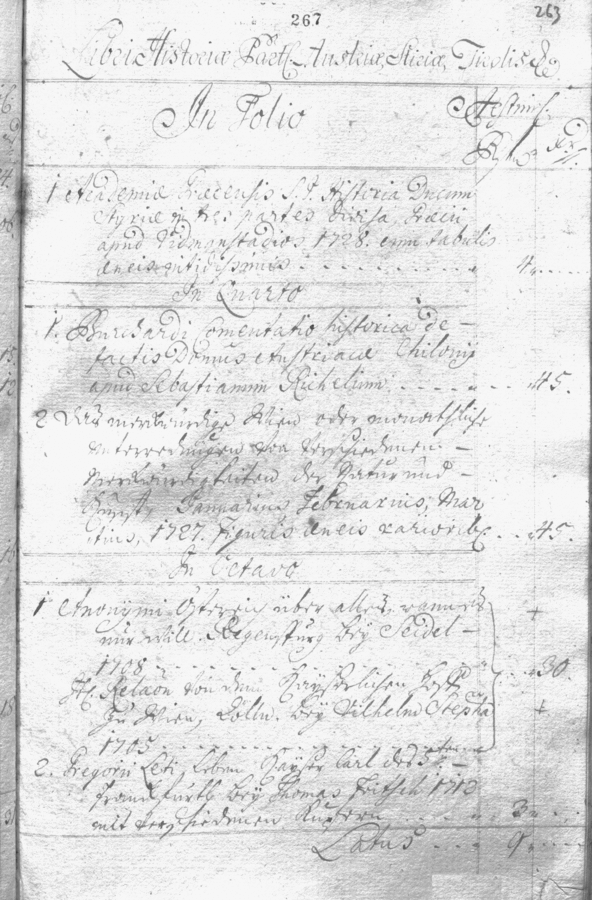 267
263
Libri Historiæ Part. Austriæ, Stiriæ, Tirolis &
In Folio
Aestim.
1 Academiæ Græcensis S. J. Historia Ducum
Styriæ in tres partes divisa, Græcii
apud Vidmanstadios 1728. cum tabulis
æneis nitidissimis 4
In Quarto
1. Burchardi Comentatio historica de
factis Domus Austriacæ. Chilonii
apud Sebastianum Richelium 45.
2 Das merkwürdige Wien oder monathliche
unterredungen von verschiedenen
Merkwürdigkeiten der Natur und
Kunst, Januarius Februarius, Mar
tius, 1727. Figuris æneis 45.
In Octavo
1 Anonymi Österreich über alles, wann es
nur will. Regensburg bey Seidel
1708 30.
It. Relaon von dem Kayserlichen Hoff
zu Wien, Cölln. bey Wilhelm Stephan
1705
2. Gregorii Leti, Leben Kayser Carl des 5t
Franckfurth bey Thomas Fritsch 1710
mit verschiedenen Kupfern 3
Latus 9